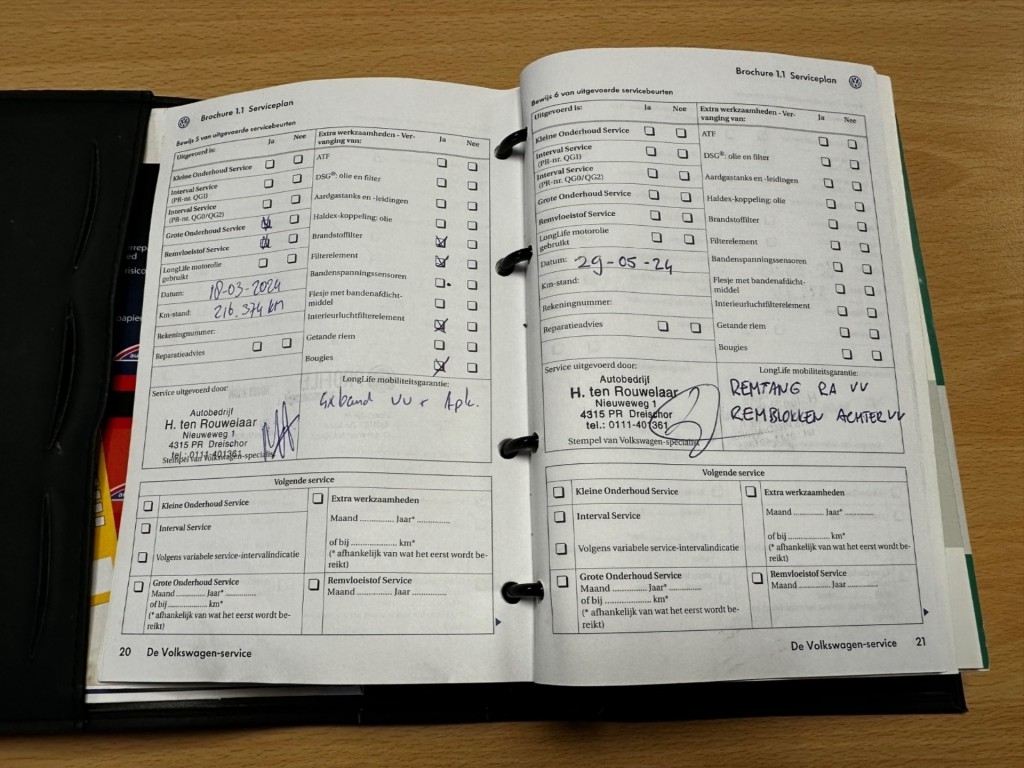 Brochure 1.1 Serviceplan
Bewijs 5 van uitgevoerde servicebeurten
Uitgevoerd is: Ja Nee
Kleine Onderhoud Service
Interval Service
(PR-nr. QG1)
Interval Service
(PR-nr. QG0/QG2)
Grote Onderhoud Service
Remvloeistof Service
LongLife motorolie
gebruikt
Datum: 18-03-2024
Km-stand: 216.374 km
Rekeningnummer:
Reparatieadvies
Extra werkzaamheden - Ver-
vanging van: Ja Nee
ATF
DSG®: olie en filter
Aardgastanks en -leidingen
Haldex-koppeling: olie
Brandstoffilter
Filterelement
Bandenspanningssensoren
Flesje met bandenafdicht-
middel
Interieurluchtfilterelement
Getande riem
Bougies
Service uitgevoerd door:
Autobedrijf
H. ten Rouwelaar
Nieuweweg 1
4315 PR Dreischor
tel.: 0111-401361
Stempel van Volkswagen-specialist
LongLife mobiliteitsgarantie:
4x band vv + Apk.
Volgende service
Kleine Onderhoud Service
Interval Service
Volgens variabele service-intervalindicatie
Grote Onderhoud Service
Maand ............ Jaar* ............
of bij ............ km*
(* afhankelijk van wat het eerst wordt be-
reikt)
Extra werkzaamheden
Maand ............ Jaar* ............
of bij ............ km*
(* afhankelijk van wat het eerst wordt be-
reikt)
Remvloeistof Service
Maand ............ Jaar ............
20 De Volkswagen-service
Brochure 1.1 Serviceplan
Bewijs 6 van uitgevoerde servicebeurten
Uitgevoerd is: Ja Nee
Kleine Onderhoud Service
Interval Service
(PR-nr. QG1)
Interval Service
(PR-nr. QG0/QG2)
Grote Onderhoud Service
Remvloeistof Service
LongLife motorolie
gebruikt
Datum: 29-05-24
Km-stand:
Rekeningnummer:
Reparatieadvies
Extra werkzaamheden - Ver-
vanging van: Ja Nee
ATF
DSG®: olie en filter
Aardgastanks en -leidingen
Haldex-koppeling: olie
Brandstoffilter
Filterelement
Bandenspanningssensoren
Flesje met bandenafdicht-
middel
Interieurluchtfilterelement
Getande riem
Bougies
Service uitgevoerd door:
Autobedrijf
H. ten Rouwelaar
Nieuweweg 1
4315 PR Dreischor
tel.: 0111-401361
Stempel van Volkswagen-specialist
LongLife mobiliteitsgarantie:
REMTANG RA VV
REMBLOKKEN ACHTER VV
Volgende service
Kleine Onderhoud Service
Interval Service
Volgens variabele service-intervalindicatie
Grote Onderhoud Service
Maand ............ Jaar* ............
of bij ............ km*
(* afhankelijk van wat het eerst wordt be-
reikt)
Extra werkzaamheden
Maand ............ Jaar* ............
of bij ............ km*
(* afhankelijk van wat het eerst wordt be-
reikt)
Remvloeistof Service
Maand ............ Jaar ............
De Volkswagen-service 21